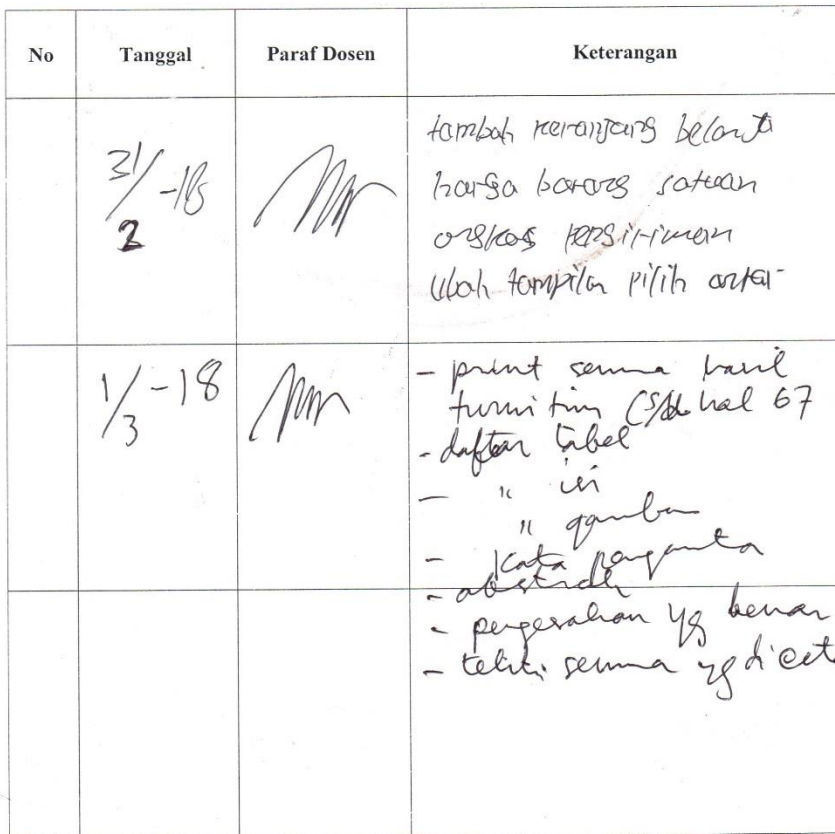 No Tanggal Paraf Dosen Keterangan
31/2 -18
tambah keranjang belanja
harga barang satuan
ongkos pengiriman
Ubah tampilan pilih antar
1/3 -18
- print semua hasil
turnitin (s/d hal 67
- daftar tabel
- " isi
" gambar
- Kata pengantar
- abstrak
- pengesahan yg benar
- teliti semua yg di